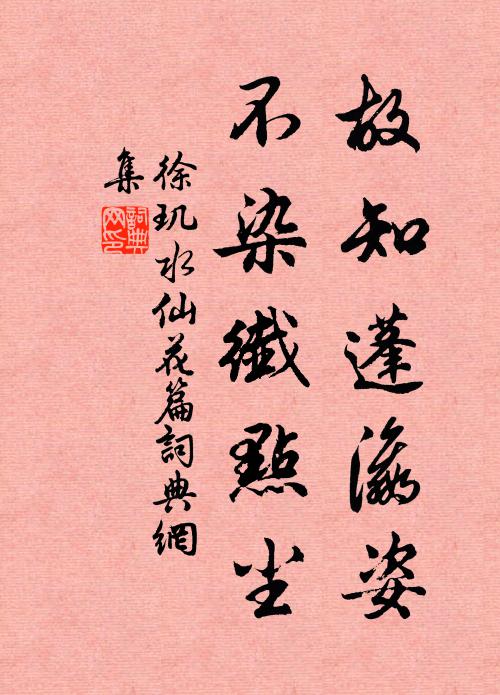 故知蓬瀛姿
不染纖點尘
徐玑水仙花篇詞典網
集
詞典
网印